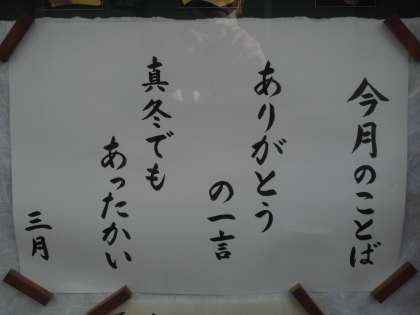 今月のことば
ありがとう
の一言
真冬でも
あったかい
三月